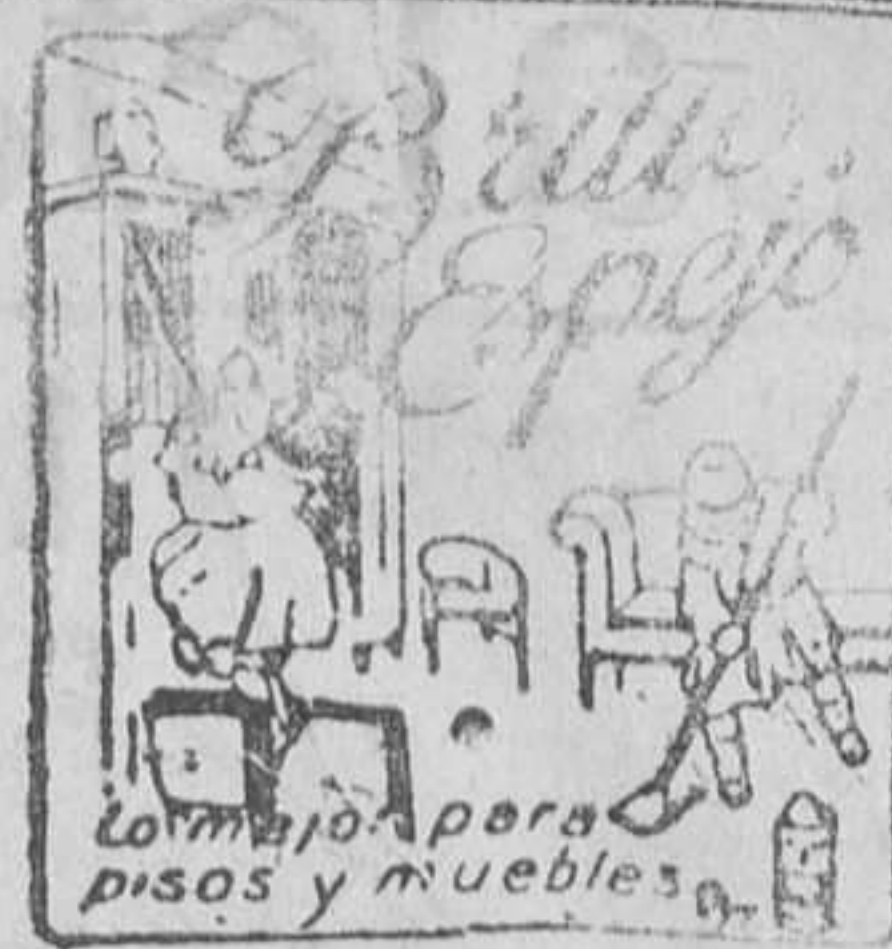 Brillo
Espejo
Lo mejor para
pisos y muebles